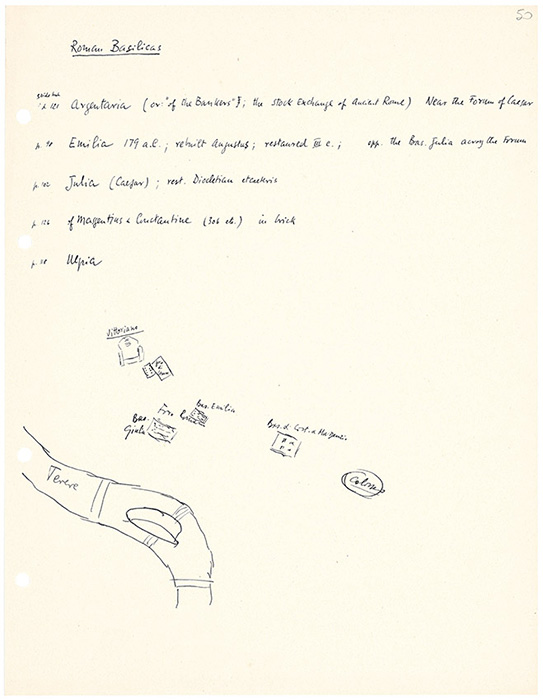 50
Roman Basilicas
p. 121 Argentaria (or: "of the Bankers"); the stock Exchange of Ancient Rome) Near the Forum of Caesar
p. 90 Emilia 179 a.C.; rebuilt Augustus; restaured III c.; opp. the Bas. Julia across the Forum
p. 102 Julia (Caesar); rest. Diocletian
p. 126 of Maxentius & Constantine (306 ch.) in brick
Ulpia
Vittoriano
Bas. Emilia
Foro
Bas. Giulia
Bas. d. Cost. e Massenzio
Tevere
Coloss